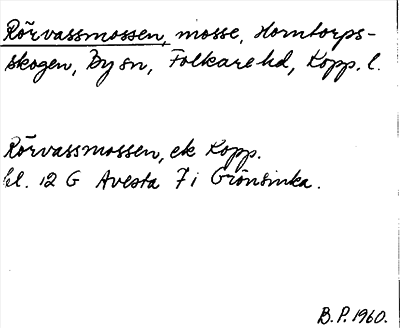 Rörvassmossen, mosse, Horntorps-
skogen, By sn, Folkare hd, Kopp. l.
Rörvassmossen, ek Kopp.
bl. 12 G Avesta 7 i Grönsinka.
B.P. 1960.